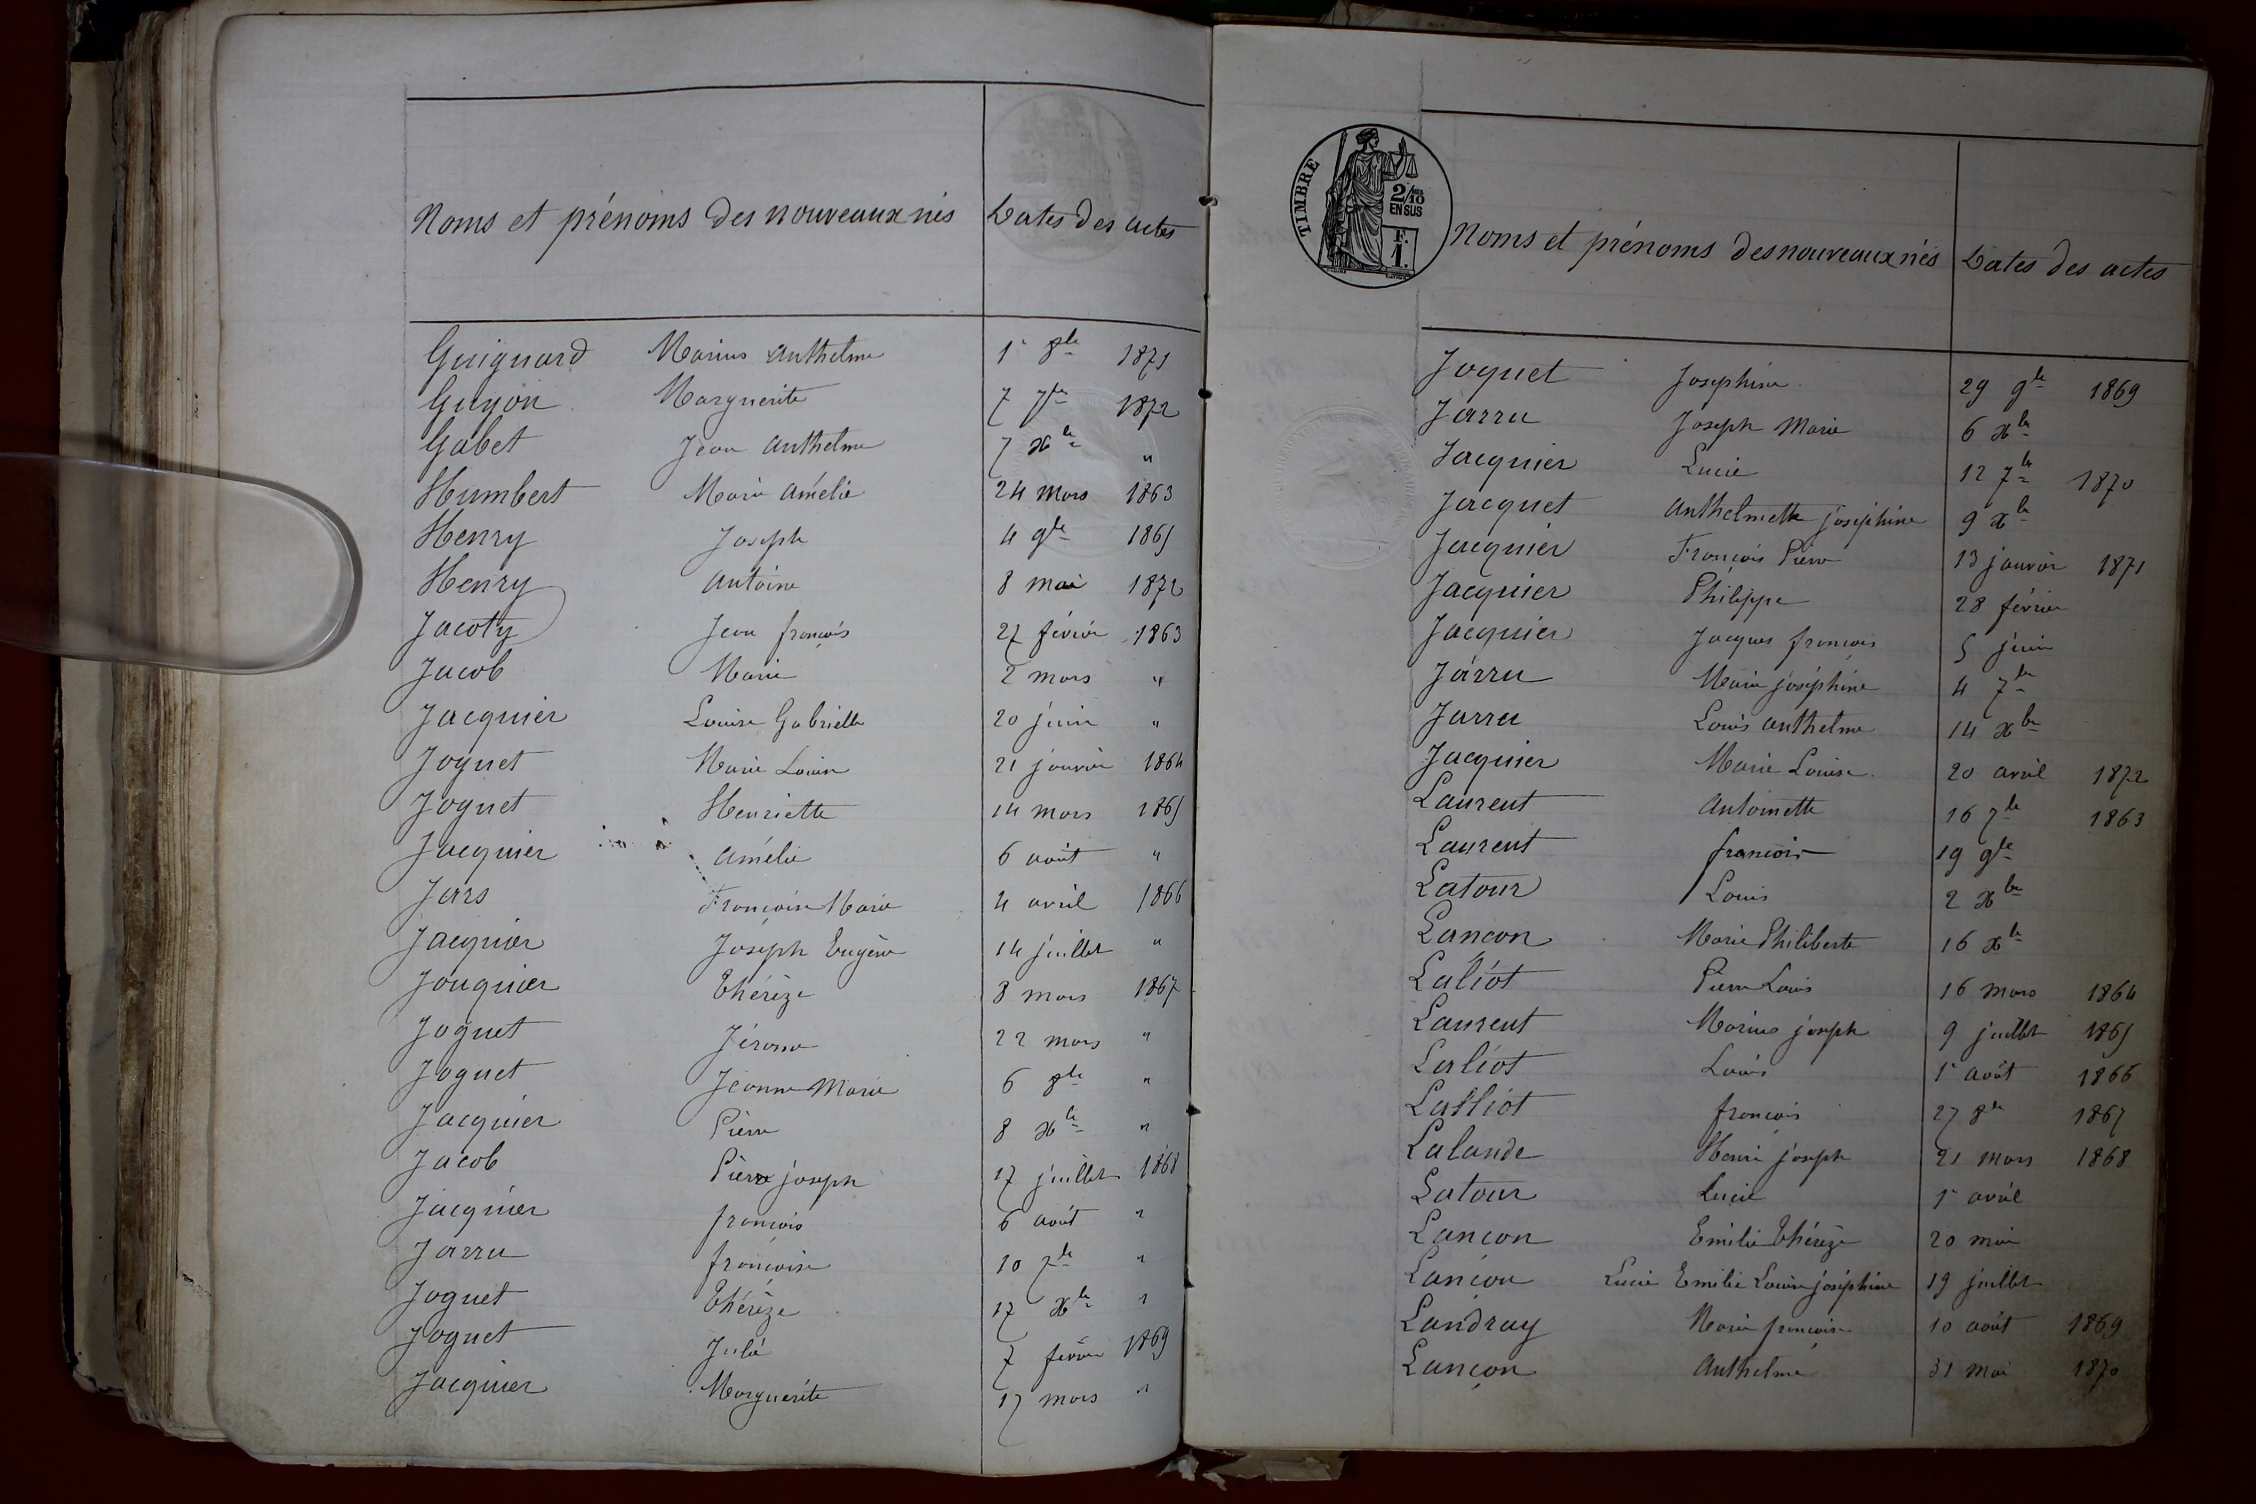 Noms et prénoms des nouveaux nés Dates des actes
Guignard Marius Anthelme 1r 8bre 1871
Guyon Marguerite 7 7bre 1872
Gabet Jean Anthelme 7 Xbre "
Humbert Marie Amélie 24 mars 1863
Henry Joseph 4 9bre 1865
Henry Antoine 8 mai 1872
Jacoty Jean françois 27 février 1863
Jacob Marie 2 mars "
Jacquier Louise Gabrielle 20 juin "
Joguet Marie Louise 21 janvier 1864
Joguet Henriette 14 mars 1865
Jacquier Amélie 6 août "
Jars Françoise Marie 4 avril 1866
Jacquier Joseph Eugène 14 juillet "
Jouguier Thérèze 8 mars 1867
Joguet Jérome 22 mars "
Joguet Jeanne Marie 6 8bre "
Jacquier Pierre 8 Xbre "
Jacob Pierre joseph 17 juillet 1868
Jacquier françois 6 août "
Jarru françoise 10 7bre "
Joguet Thérèze 17 Xbre "
Joguet Julie 7 février 1869
Jacquier Marguerite 17 mars "
TIMBRE
2/10
EN SUS
F.
1.
Noms et prénoms des nouveaux nés Dates des actes
Joguet Josephine 29 9bre 1869
Jarru Joseph Marie 6 Xbre
Jacquier Lucie 12 7bre 1870
Jacquet Anthelmette joséphine 9 Xbre
Jacquier François Pierre 13 janvier 1871
Jacquier Philippe 28 février
Jacquier Jacques françois 5 juin
Jarru Marie joséphine 4 7bre
Jarru Louis Anthelme 14 Xbre
Jacquier Marie Louise 20 avril 1872
Laurent Antoinette 16 7bre 1863
Laurent françois 19 9bre
Latour Louis 2 Xbre
Lançon Marie Philiberte 16 Xbre
Laliot Pierre Louis 16 mars 1864
Laurent Marius joseph 9 juillet 1865
Laliot Louis 1r août 1866
Lalliot françois 27 8bre 1867
Lalande Henri joseph 21 mars 1868
Latour Lucie 1r avril
Lançon Emilie Thérèze 20 mai
Lançon Lucie Emilie Louise joséphine 19 juillet
Landray Marie françoise 10 août 1869
Lançon Anthelme 31 mai 1870